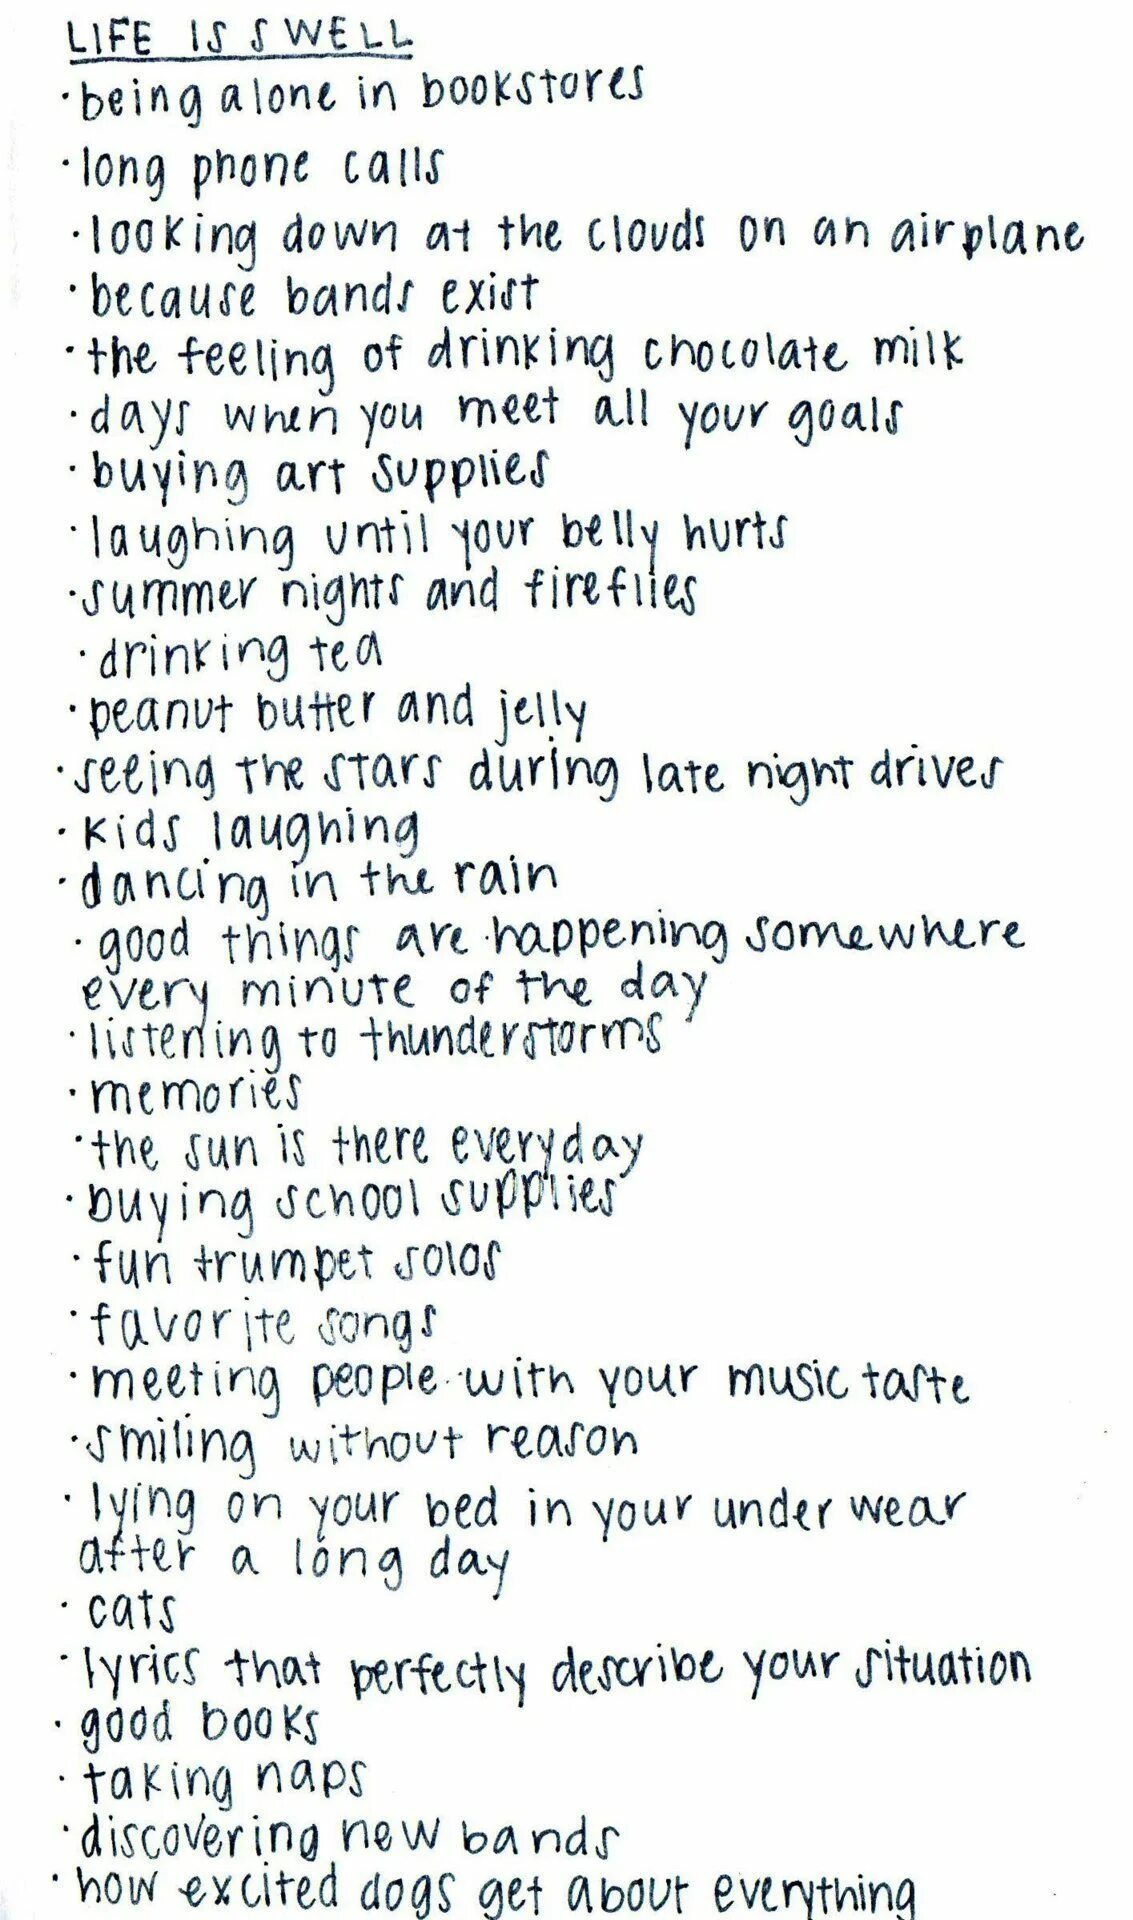 LIFE IS SWELL
·being alone in bookstores
·long phone calls
·looking down at the clouds on an airplane
·because bands exist
·the feeling of drinking chocolate milk
·days when you meet all your goals
·buying art supplies
·laughing until your belly hurts
·summer nights and fireflies
·drinking tea
·peanut butter and jelly
·seeing the stars during late night drives
·kids laughing
·dancing in the rain
·good things are happening somewhere
every minute of the day
·listening to thunderstorms
·memories
·the sun is there everyday
·buying school supplies
·fun trumpet solos
·favorite songs
·meeting people with your music taste
·smiling without reason
·lying on your bed in your underwear
after a long day
·cats
·lyrics that perfectly describe your situation
·good books
·taking naps
·discovering new bands
·how excited dogs get about everything